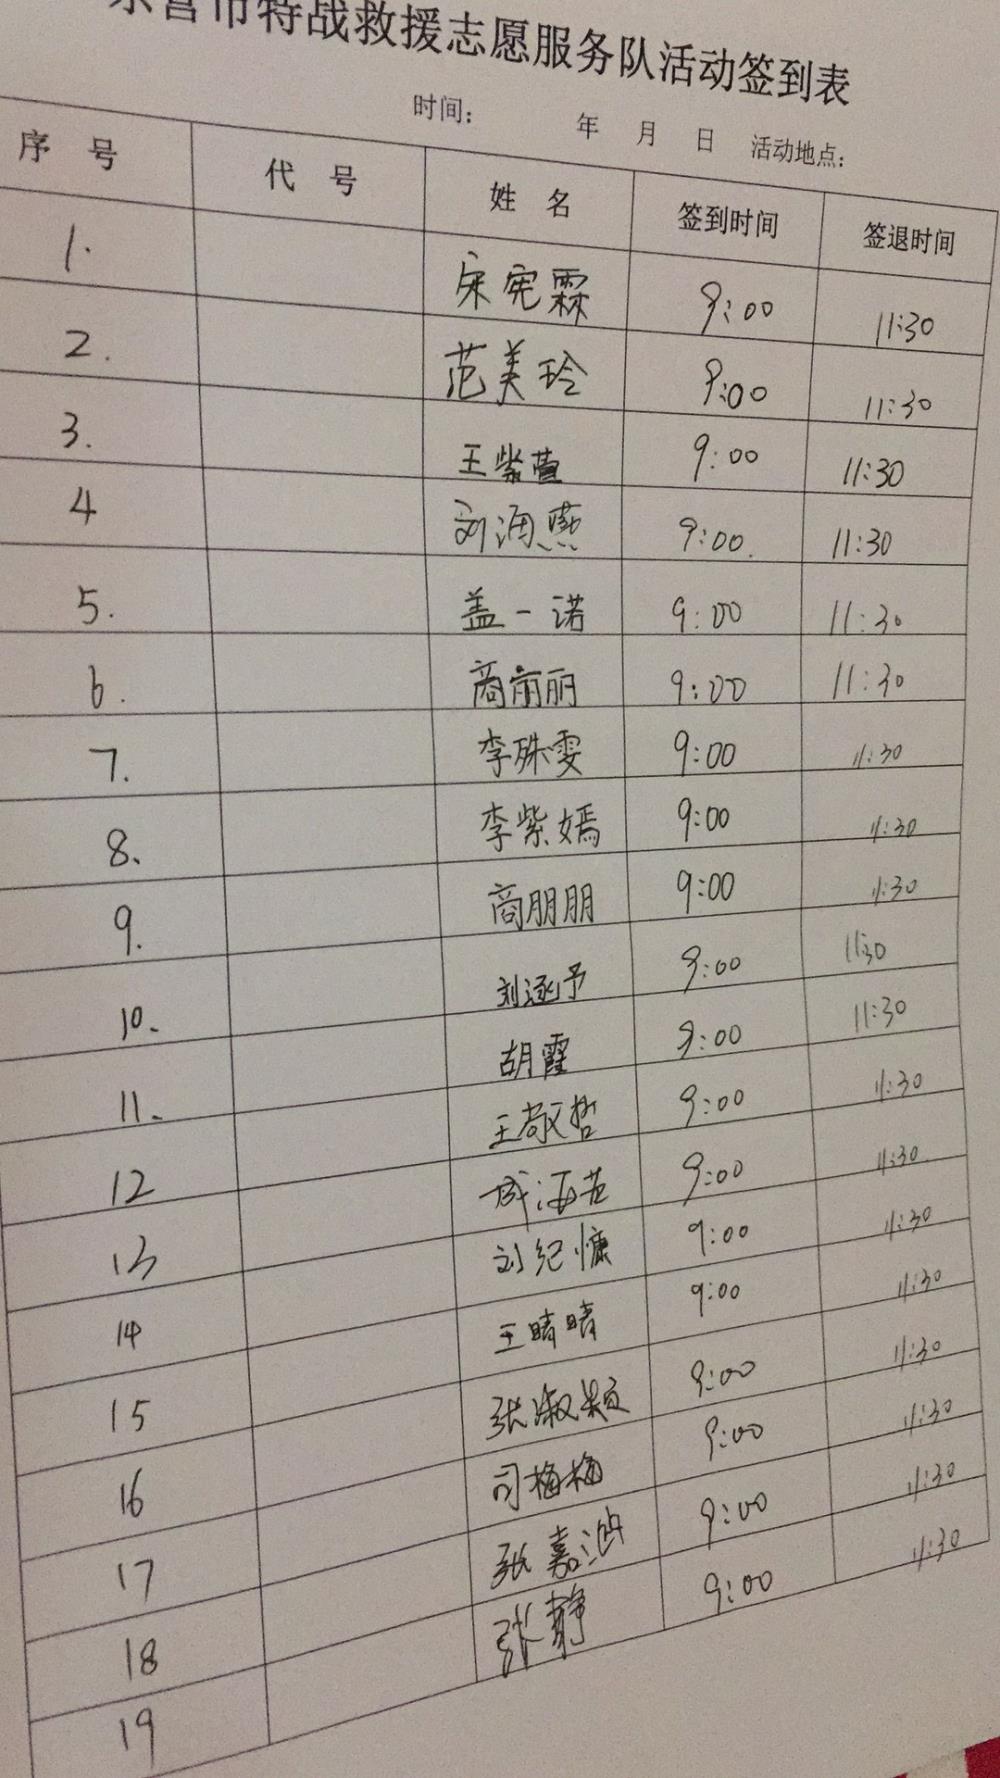 东营市特战救援志愿服务队活动签到表
时间: 年 月 日 活动地点:
序 号 代 号 姓 名 签到时间 签退时间
1. 宋宪霖 9:00 11:30
2. 范美玲 9:00 11:30
3. 王紫萱 9:00 11:30
4 刘海燕 9:00. 11:30
5. 盖一诺 9:00 11:30
6. 商丽丽 9:00 11:30
7. 李殊雯 9:00 11:30
8. 李紫嫣 9:00 11:30
9. 商朋朋 9:00 11:30
10. 刘涵予 9:00 11:30
11. 胡霞 9:00 11:30
12 王敬哲 9:00 11:30
13 成海苗 9:00 11:30
14 刘纪慷 9:00 11:30
15 王晴晴 9:00 11:30
16 张淑颖 9:00 11:30
17 司梅梅 9:00 11:30
18 张嘉 9:00 11:30
19 张静 9:00 11:30